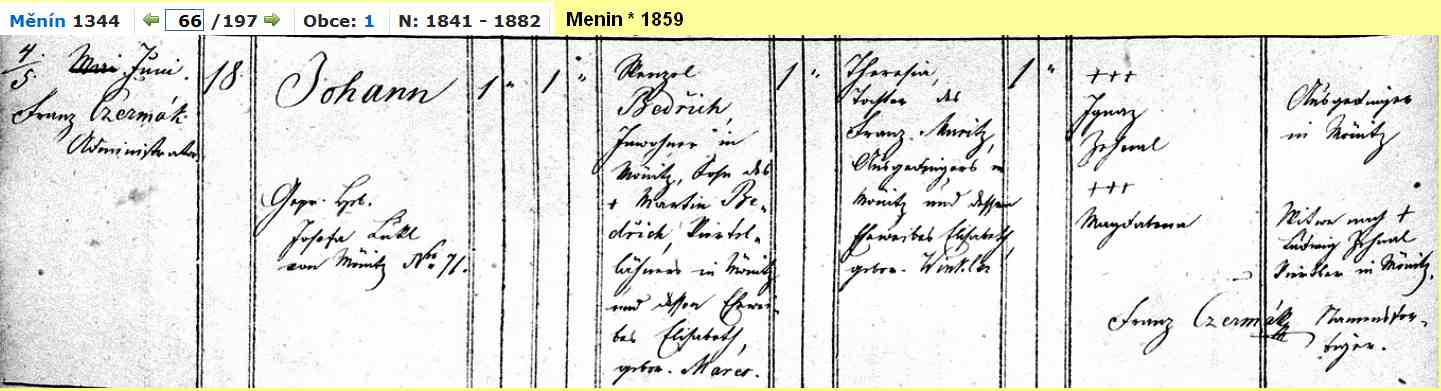 Měnín 1344 66 /197 Obce: 1 N: 1841 - 1882 Menin * 1859
4/5 Mai Juni.
Franz Czermák
Administrator
18
Johann
Gepr. Heb.
Josefa Lukl
von Mönitz No 71.
1 " 1 "
Wenzel
Bedřich,
Inwohner in
Mönitz, Sohn des
+ Martin Be-
dřich, Viertel-
lähners in Mönitz
und dessen Ehewei-
bes Elisabeth,
gebor. Mares.
1 "
Theresia,
Tochter des
Franz Maritz,
Ausgedingers in
Mönitz und dessen
Eheweibes Elisabeth,
gebor. Winkler
1 "
+++
Ignaz
Zehnal
+++
Magdalena
Franz Czermák
Ausgedinger
in Mönitz
Witwe nach +
Ludwig Zehnal
Viertler in Mönitz.
Namensfer-
tiger.